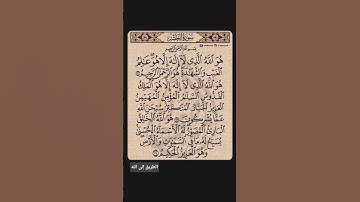 سورة الحشر
بسم الله الرحمن الرحيم
هُوَ اللَّهُ الَّذِي لَا إِلَٰهَ إِلَّا هُوَ عَالِمُ
الْغَيْبِ وَالشَّهَادَةِ هُوَ الرَّحْمَٰنُ الرَّحِيمُ
هُوَ اللَّهُ الَّذِي لَا إِلَٰهَ إِلَّا هُوَ الْمَلِكُ
الْقُدُّوسُ السَّلَامُ الْمُؤْمِنُ الْمُهَيْمِنُ
الْعَزِيزُ الْجَبَّارُ الْمُتَكَبِّرُ سُبْحَانَ اللَّهِ
عَمَّا يُشْرِكُونَ هُوَ اللَّهُ الْخَالِقُ
الْبَارِئُ الْمُصَوِّرُ لَهُ الْأَسْمَاءُ الْحُسْنَىٰ
يُسَبِّحُ لَهُ مَا فِي السَّمَاوَاتِ وَالْأَرْضِ
وَهُوَ الْعَزِيزُ الْحَكِيمُ
الطريق إلى الله